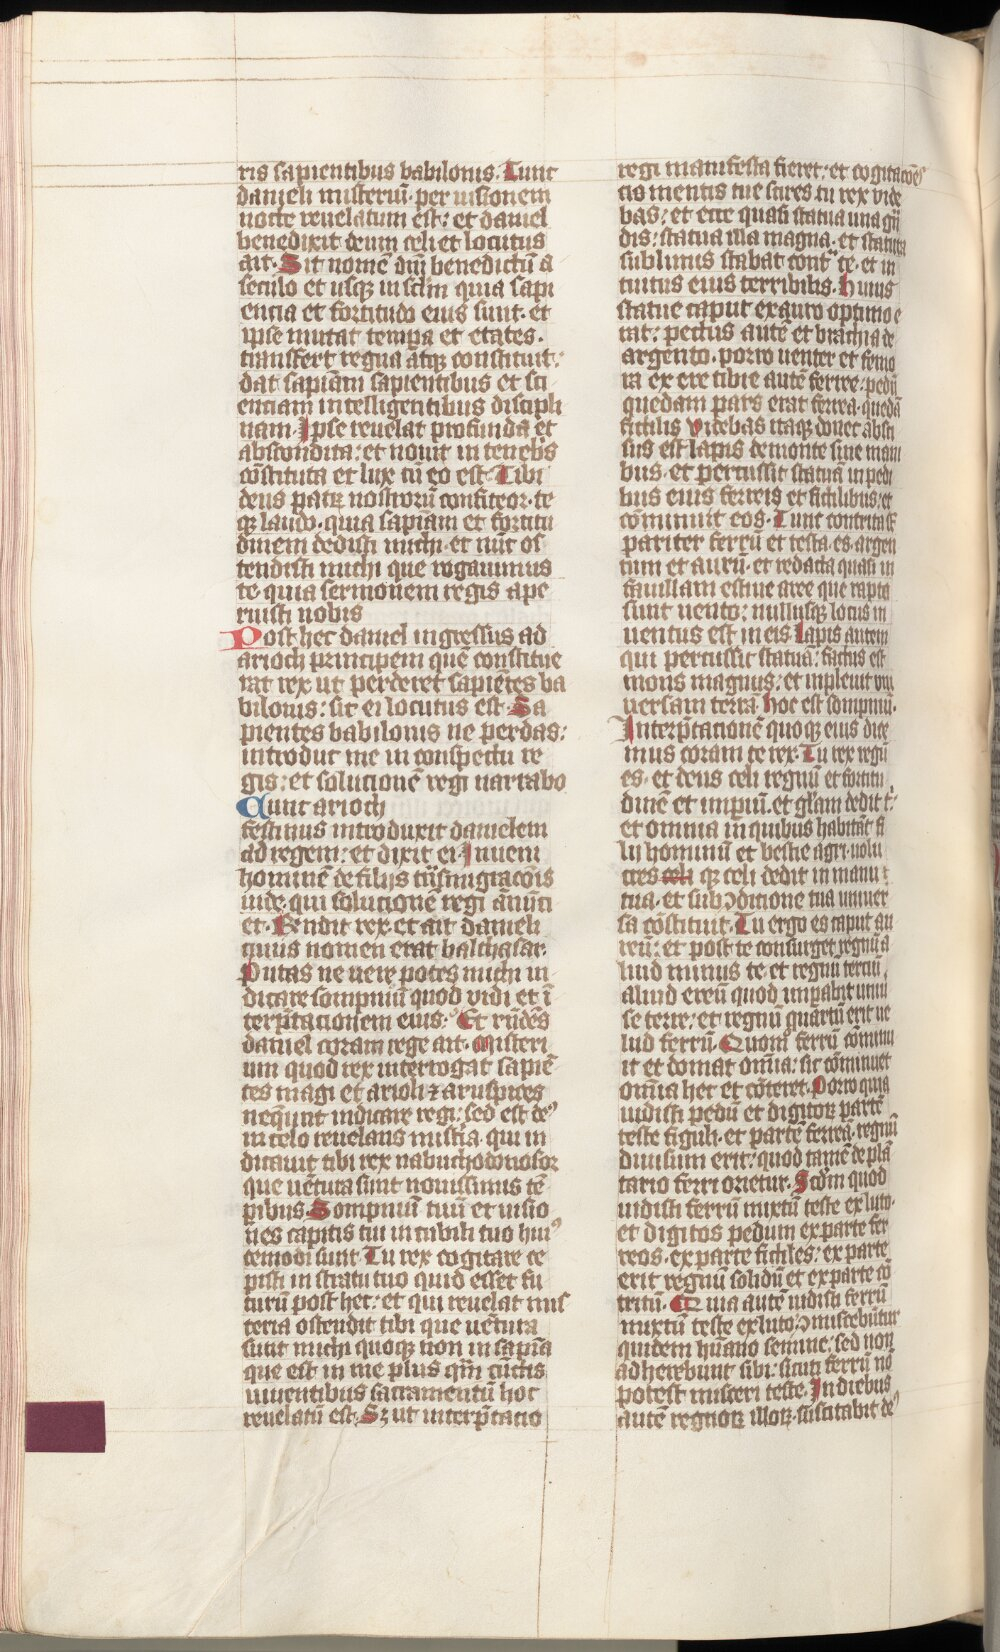 ris sapientibus babilonis. Tunc
danieli misteriū. per uisionem
nocte reuelatum est: et daniel
benedixit deum celi et locutus
ait. Sit nomē dn̄i benedictū a
seculo et usq; in sc̄lm quia sapi
encia et fortitudo eius sunt. et
ipse mutat tempa et etates.
transfert regna atq; constituit:
dat sapiām sapientibus et sci
enciam intelligentibus discipli
nam. Ipse reuelat profunda et
abscondita: et nouit in tenebs
cōstituta et lux cū eo est. Tibi
deus patꝝ nostrorū confiteor. te
q; laudo. quia sapiam et fortitu
dinem dedisti michi. et nūc os
tendisti michi que rogauimus
te. quia sermonem regis ape
ruisti nobis
Post hec daniel ingressus ad
arioch principem quē constitue
rat rex ut perderet sapiētes ba
bilonis: sic ei locutus est. Sa
pientes babilonis ne perdas:
introduc me in conspectu re
gis: et solucionē regi narrabo
Tunc arioch
festinus introduxit danielem
ad regem: et dixit ei. Inueni
hominē de filijs trāsmigracōis
iude. qui solucionē regi ānūci
et. Rēndit rex. et ait danieli
cuius nomen erat balthasar.
Putas ne uere potes michi in
dicare sompniū quod vidi et ī
terp̄tacionem eius: Et rn̄dēs
daniel coram rege ait. Misteri
um quod rex interrogat sapiē
tes magi et arioli ⁊ aruspices
neq̄unt indicare regi: sed est deꝰ
in celo reuelans mistia. qui in
dicauit tibi rex nabuchodonosor
que uētura sunt nouissimis tē
pibus. Sompniū tuū et uisio
nes capitis tui in cubili tuo huiꝰ
cemodi sunt. Tu rex cogitare ce
pisti in stratu tuo quid esset fu
turū post hec: et qui reuelat mis
teria ostendit tibi que uētura
sunt michi quoq; non in sapiā
que est in me plus qm̄ cūctis
uiuentibus sacramentū hoc
reuelatū est. Sꝫ ut interp̄tatio
regi manifesta fieret: et cogitacōes
tis mentis tue scires tu rex vide
bas: et ecce quasi statua una gn̄
dis: statua illa magna. et statura
sublimis stabat cont̄ te. et in
tuitus eius terribilis. huius
statue caput ex auro optimo e
rat: pectus autē et brachia de
argento. porro uenter et femo
ra ex ere tibie autē ferree. pedū
quedam pars erat ferrea. quedā
fictilis videbas itaq; donec absci
sus est lapis de monte sine mani
bus. et percussit statuā in pedi
bus eius ferreis et fictilibus: et
cōminuit eos. Tunc contrita st̄
pariter ferrū et testa. es. argen
tum et aurū. et redacta quasi in
fauillam estiue aree que rapta
sunt uento: nullusq; locus in
uentus est in eis. Lapis autem
qui percussit statuā: factus est
mons magnus: et inpleuit vni
uersam terrā. Hoc est sompniū.
Interp̄tacionē quoq; eius dice
mus coram te rex. Tu rex regū
es. et deus celi regnū et fortitu
dinē et imp̄iū. et gl̄am dedit t:
et omnia in quibus habitāt fi
lij hominū et bestie agri. uolu
cres celi q; celi dedit in manu t
tua. et sub ꝯditione tua uniuer
sa cōstituit. Tu ergo es caput au
reū: et post te consurget regnū a
liud minus te. et regnū terciū,
aliud ereū quod imp̄abit uniu
se terre: et regnū quartū erit ue
lud ferrū. Quom̄o ferrū cōminu
it et domat om̄ia: sic cōminuet
om̄ia hec et cōteret. Porro quia
uidisti pedū et digitoꝝ partē
teste figuli. et partē ferreā. regnū
diuisum erit: quod tamē de plā
tario ferri orietur. Scdm̄ quod
uidisti ferrū mixtū teste ex luto.
et digitos pedum ex parte fer
reos. ex parte fictiles: ex parte
erit regnū solidū et ex parte cō
tritū. Quia autē uidisti ferrū
mixtū teste ex luto: ꝯmiscebūtur
quidem hūano semine: sed non
adherebunt sibi: sicuti ferrū nō
potest misceri teste. In diebus
autē regnoꝝ illoꝝ. suscitabit deꝰ